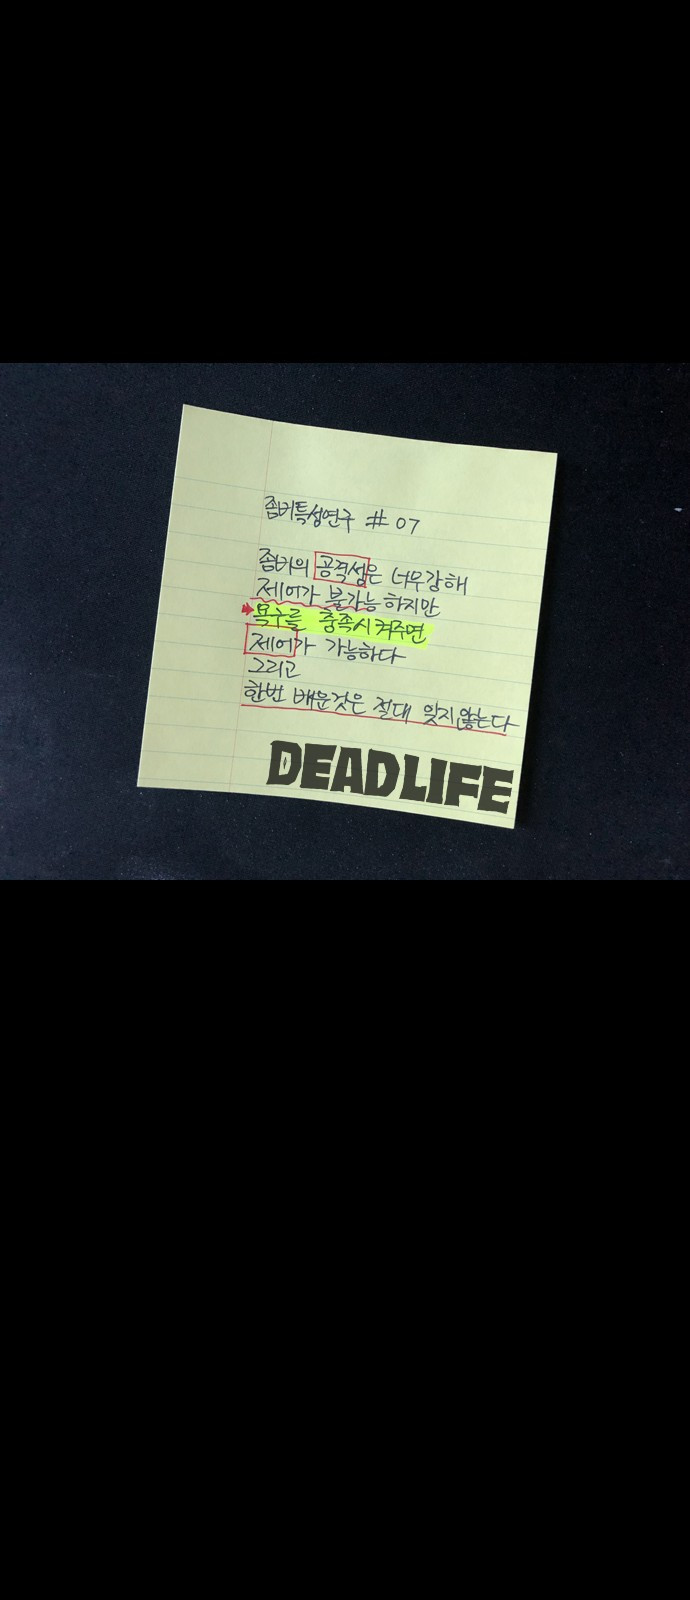 좀비특성연구 # 07
좀비의 공격성은 너무강해
제어가 불가능 하지만
욕구를 충족시켜주면
제어가 가능하다
그리고
한번 배운것은 절대 잊지않는다
DEADLIFE